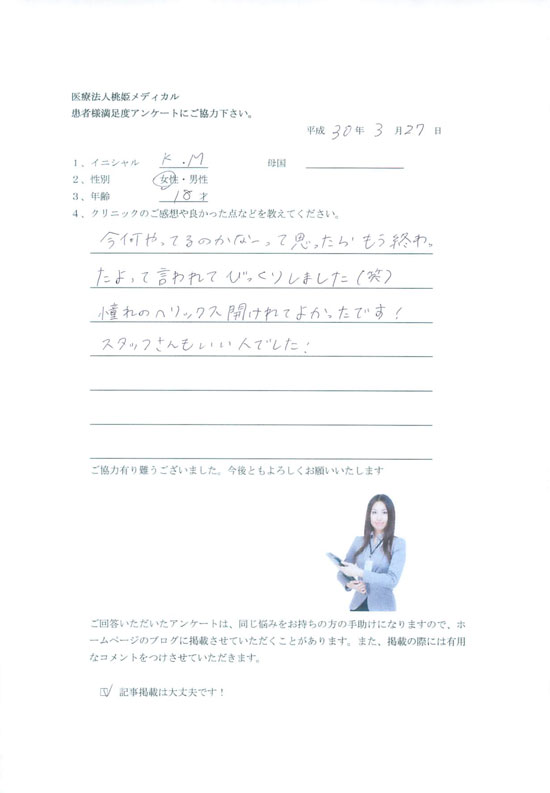 医療法人桃姫メディカル
患者様満足度アンケートにご協力下さい。
平成 30 年 3 月 27 日
1、イニシャル K.M 母国
2、性別 女性・男性
3、年齢 18才
4、クリニックのご感想や良かった点などを教えてください。
今何やってるのかなーって思ったらもう終わっ
たよって言われてびっくりしました(笑)
憧れのヘリックス開けれてよかったです!
スタッフさんもいい人でした!
ご協力有り難うございました。今後ともよろしくお願いいたします
ご回答いただいたアンケートは、同じ悩みをお持ちの方の手助けになりますので、ホ
ームページのブログに掲載させていただくことがあります。また、掲載の際には有用
なコメントをつけさせていただきます。
☑ 記事掲載は大丈夫です!